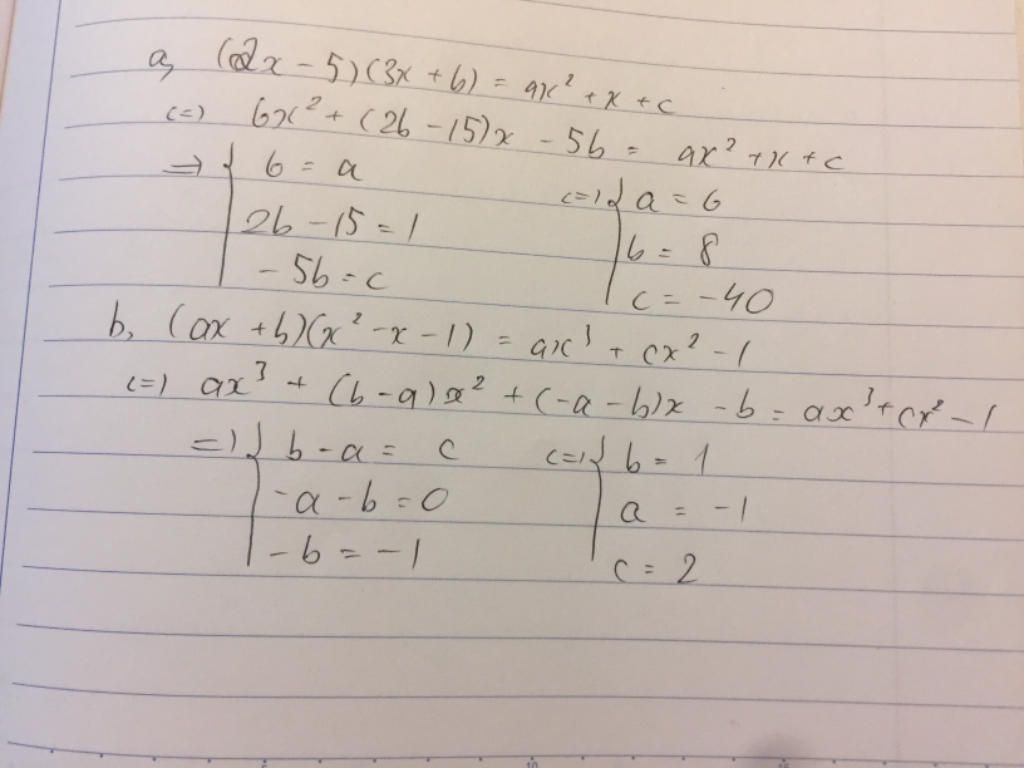 a, (2x - 5)(3x + b) = ax² + x + c
<=> 6x² + (2b - 15)x - 5b = ax² + x + c
=> { 6 = a <=> { a = 6
2b - 15 = 1 b = 8
- 5b = c c = -40
b, (ax + b)(x² - x - 1) = ax³ + cx² - 1
<=> ax³ + (b - a)x² + (-a - b)x - b = ax³ + cx² - 1
=> { b - a = c <=> { b = 1
-a - b = 0 a = -1
- b = -1 c = 2
10